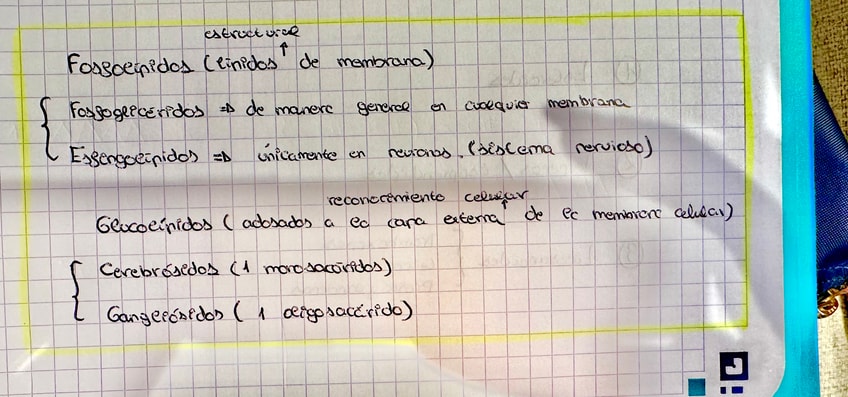 estructural
Fosfolípidos (lípidos ↑ de membrana)
Fosfoglicéridos => de manera general en cualquier membrana
Esfingolípidos => únicamente en neuronas. (sistema nervioso)
reconocimiento celular
Glucolípidos (adosados a la cara externa ↑ de la membrana celular)
Cerebrósidos (1 monosacáridos)
Gangliósidos (1 oligosacárido)